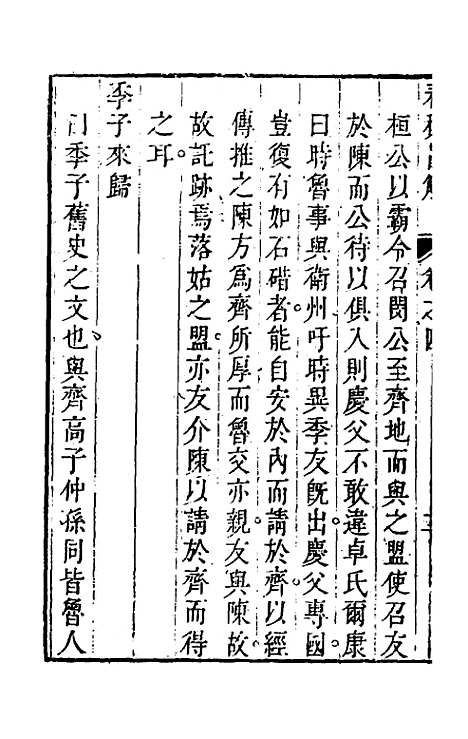 卷之四
桓公以霸令召閔公至齊地而與之盟使召友
於陳而公待以俱入則慶父不敢違卓氏爾康
曰時魯事與衛州吁時異季友旣出慶父專國
豈復有如石碏者能自安於內而請於齊以經
傳推之陳方爲齊所厚而魯交亦親友與陳故
故託跡焉落姑之盟亦友介陳以請於齊而得
之耳
季子來歸
曰季子舊史之文也與齊高子仲孫同皆魯人